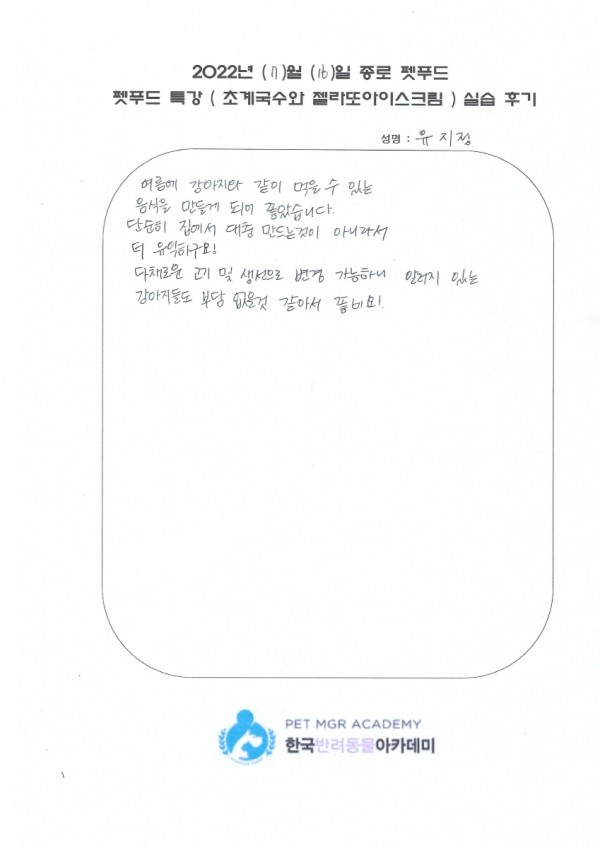 2022년 (7)월 (16)일 종로 펫푸드
펫푸드 특강 ( 초계국수와 젤라또아이스크림 ) 실습 후기
성명 : 유지정
여름에 강아지와 같이 먹을 수 있는
음식을 만들게 되어 좋았습니다.
단순히 집에서 대충 만드는것이 아니라서
더 유익하구요!
다채로운 고기 및 생선으로 변경 가능하니 알러지 있는
강아지들도 부담 없을것 같아서 좋네요!
PET MGR ACADEMY
한국반려동물아카데미